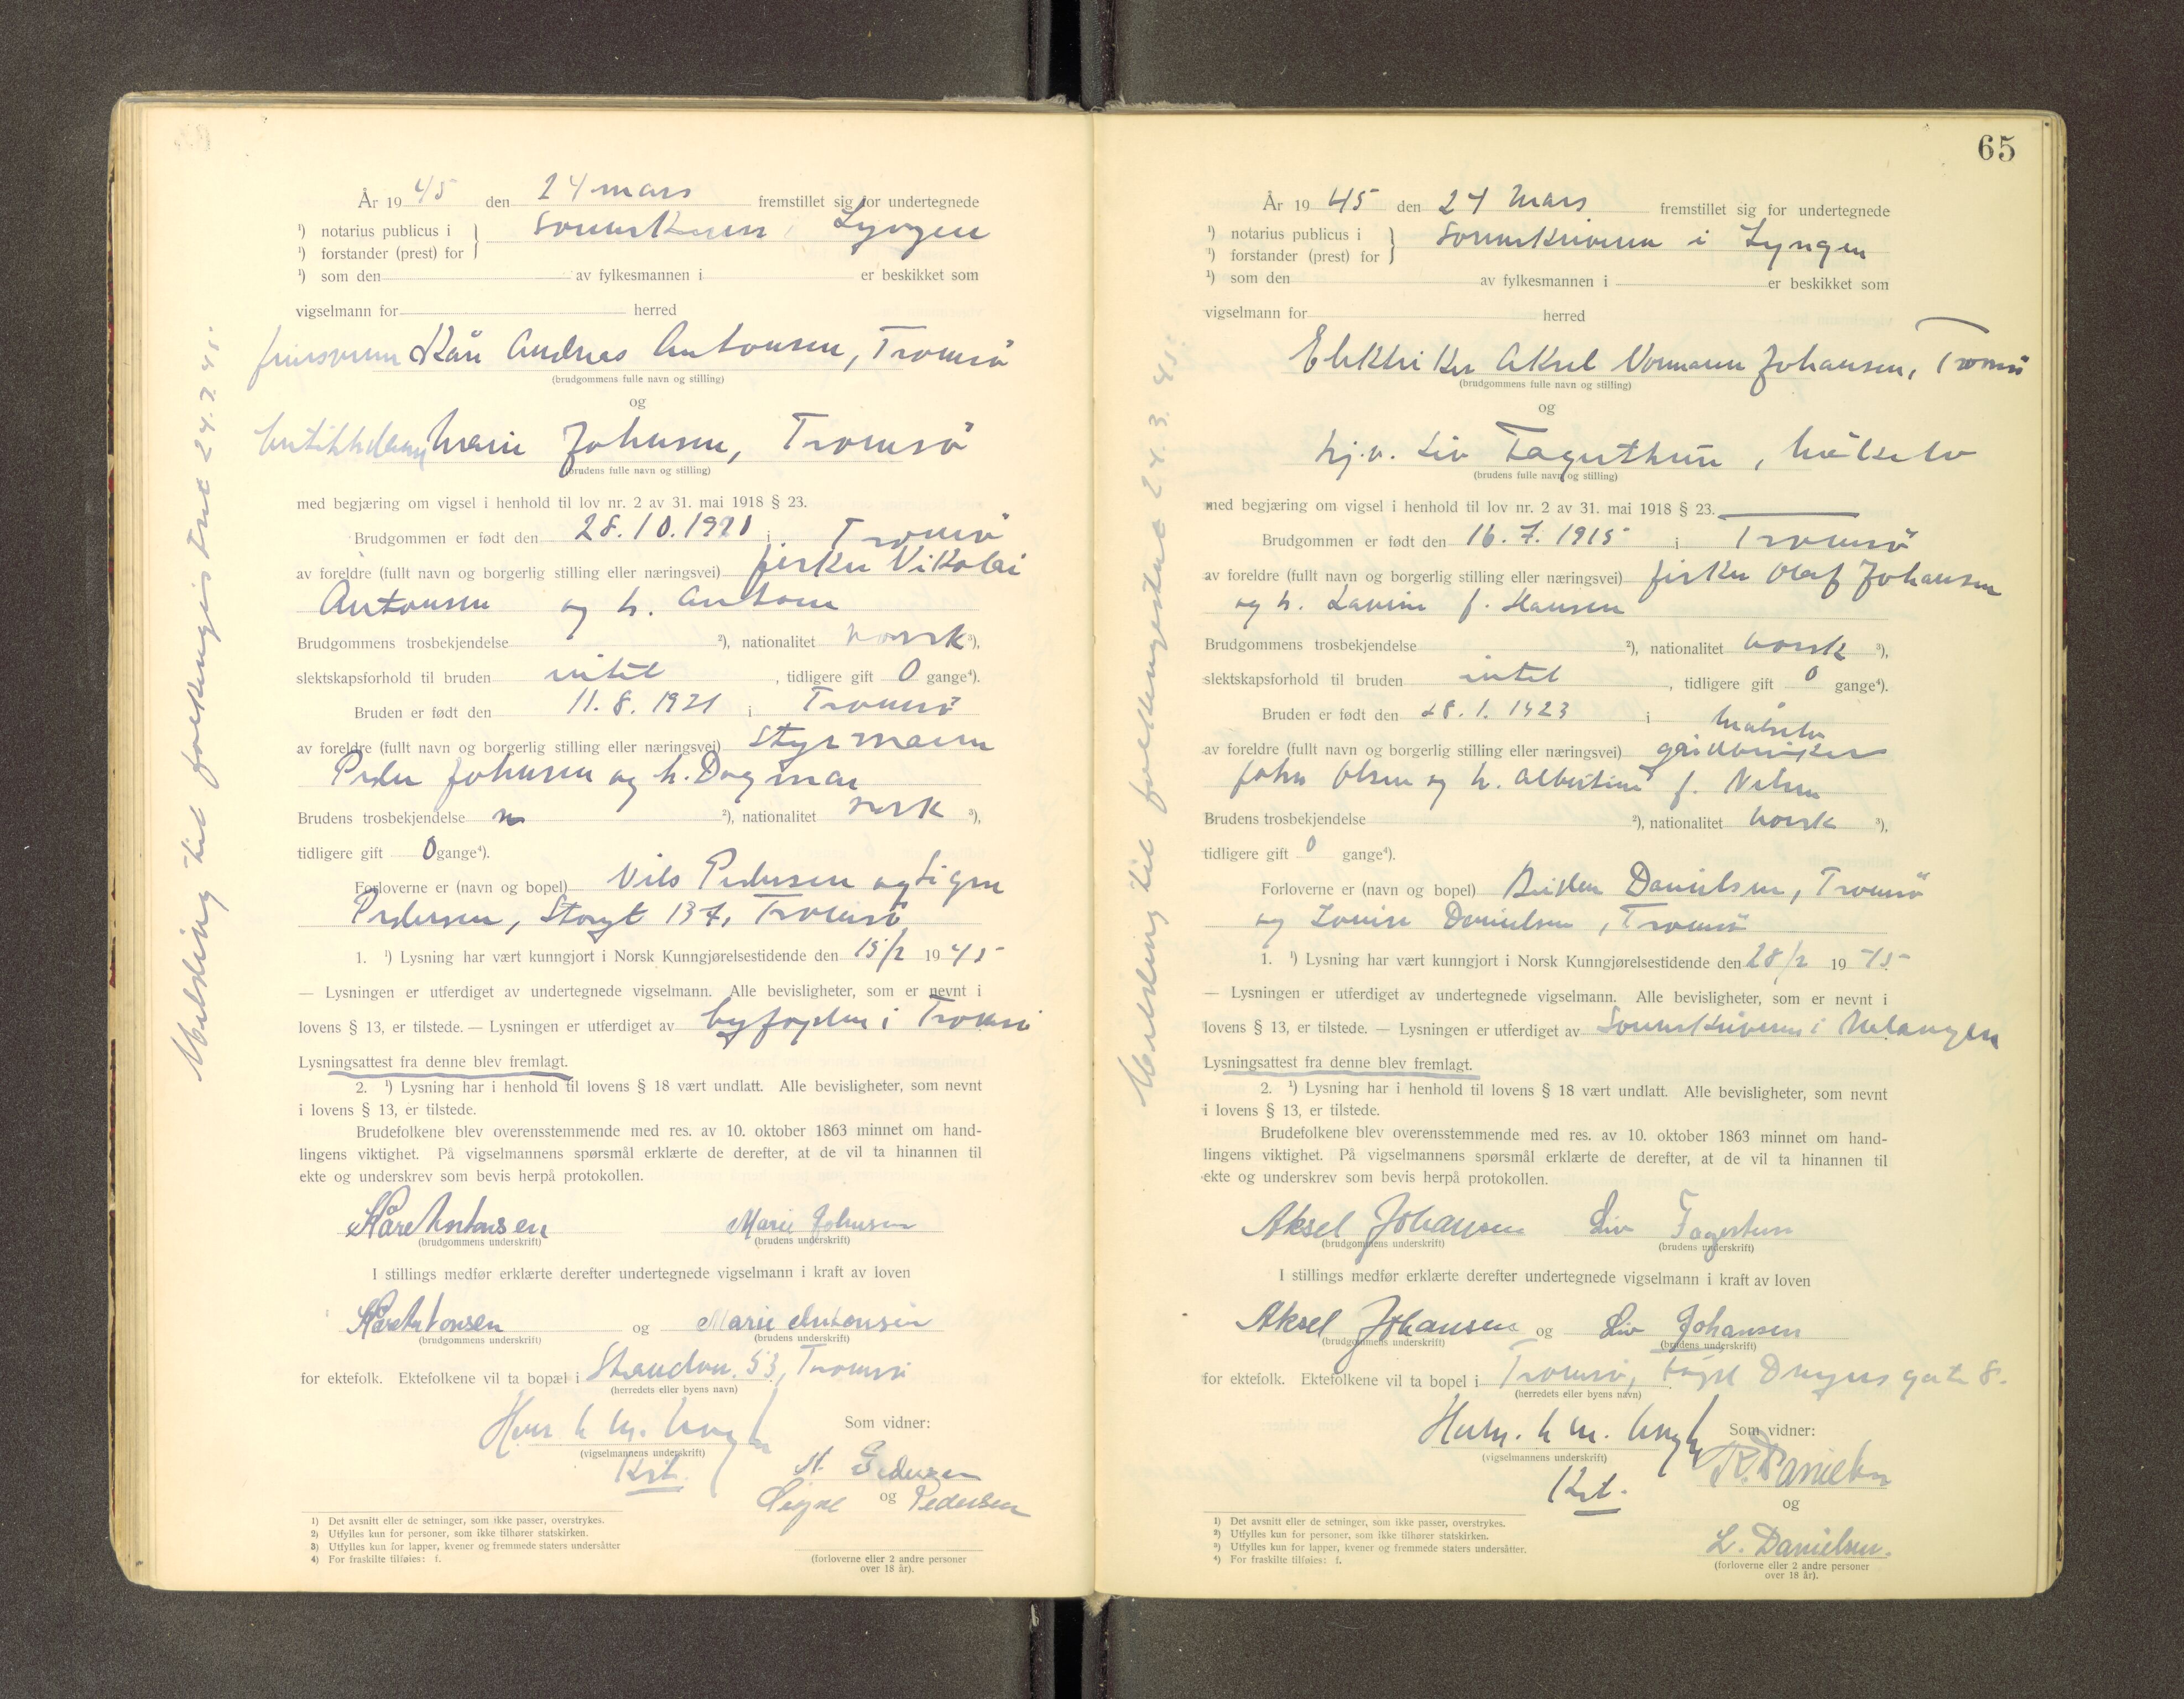 År 1945 den 24 mars fremstillet sig for undertegnede
¹) notarius publicus i
¹) forstander (prest) for } i Lyngen
¹) som den av fylkesmannen i er beskikket som
vigselmann for herred
Kåre Andreas Antonsen, Tromsö
(brudgommens fulle navn og stilling)
og
Marie Johnsen, Tromsö
(brudens fulle navn og stilling)
med begjæring om vigsel i henhold til lov nr. 2 av 31. mai 1918 § 23.
Brudgommen er født den 28.10.1920 i Tromsö
av foreldre (fullt navn og borgerlig stilling eller næringsvei) fisker Nikolai
Antonsen og h.
Brudgommens trosbekjendelse ²), nationalitet norsk ³),
slektskapsforhold til bruden intet, tidligere gift 0 gange⁴).
Bruden er født den 11.8.1921 i Tromsö
av foreldre (fullt navn og borgerlig stilling eller næringsvei) Styrmann
Peder Johnsen og h. Dagmar
Brudens trosbekjendelse ²), nationalitet norsk ³),
tidligere gift 0 gange⁴).
Forloverne er (navn og bopel) Nils Pedersen og Signe
Pedersen, Storgt 137, Tromsö
1. ¹) Lysning har vært kunngjort i Norsk Kunngjørelsestidende den 15/2 1945
— Lysningen er utferdiget av undertegnede vigselmann. Alle bevisligheter, som er nevnt i
lovens § 13, er tilstede. — Lysningen er utferdiget av byfogden i Tromsö
Lysningsattest fra denne blev fremlagt.
2. ¹) Lysning har i henhold til lovens § 18 vært undlatt. Alle bevisligheter, som nevnt
i lovens § 13, er tilstede.
Brudefolkene blev overensstemmende med res. av 10. oktober 1863 minnet om hand-
lingens viktighet. På vigselmannens spørsmål erklærte de derefter, at de vil ta hinannen til
ekte og underskrev som bevis herpå protokollen.
Kåre Antonsen Marie Johnsen
(brudgommens underskrift) (brudens underskrift)
I stillings medfør erklærte derefter undertegnede vigselmann i kraft av loven
Kåre Antonsen og Marie Antonsen
(brudgommens underskrift) (brudens underskrift)
for ektefolk. Ektefolkene vil ta bopæl i Strandvn. 53, Tromsö
(herredets eller byens navn)
(vigselmannens underskrift)
Kst.
Som vidner:
N. Pedersen
og
Signe Pedersen
(forloverne eller 2 andre personer
over 18 år).
1) Det avsnitt eller de setninger, som ikke passer, overstrykes.
2) Utfylles kun for personer, som ikke tilhører statskirken.
3) Utfylles kun for lapper, kvener og fremmede staters undersåtter
4) For fraskilte tilføies: f.
Melding til folketingsist. 24.3.45.
65
År 1945 den 24 Mars fremstillet sig for undertegnede
¹) notarius publicus i
¹) forstander (prest) for } Sorenskriveren i Lyngen
¹) som den av fylkesmannen i er beskikket som
vigselmann for herred
Elektriker Aksel Normann Johansen, Tromsö
(brudgommens fulle navn og stilling)
og
hj.v. Liv Fagerthun, Målselv
(brudens fulle navn og stilling)
med begjæring om vigsel i henhold til lov nr. 2 av 31. mai 1918 § 23.
Brudgommen er født den 16.7.1915 i Tromsö
av foreldre (fullt navn og borgerlig stilling eller næringsvei) fisker Olaf Johansen
og h. f. Hansen
Brudgommens trosbekjendelse ²), nationalitet norsk ³),
slektskapsforhold til bruden intet, tidligere gift 0 gange⁴).
Bruden er født den 28.1.1923 i Målselv
av foreldre (fullt navn og borgerlig stilling eller næringsvei) gårdbruker
John Olsen og h. Albertine f. Nilsen
Brudens trosbekjendelse ²), nationalitet norsk ³),
tidligere gift 0 gange⁴).
Forloverne er (navn og bopel) Danielsen, Tromsö
og Louise Danielsen, Tromsö
1. ¹) Lysning har vært kunngjort i Norsk Kunngjørelsestidende den 28/2 1945
— Lysningen er utferdiget av undertegnede vigselmann. Alle bevisligheter, som er nevnt i
lovens § 13, er tilstede. — Lysningen er utferdiget av Sorenskriveren i Malangen
Lysningsattest fra denne blev fremlagt.
2. ¹) Lysning har i henhold til lovens § 18 vært undlatt. Alle bevisligheter, som nevnt
i lovens § 13, er tilstede.
Brudefolkene blev overensstemmende med res. av 10. oktober 1863 minnet om hand-
lingens viktighet. På vigselmannens spørsmål erklærte de derefter, at de vil ta hinannen til
ekte og underskrev som bevis herpå protokollen.
Aksel Johansen Liv Fagerthun
(brudgommens underskrift) (brudens underskrift)
I stillings medfør erklærte derefter undertegnede vigselmann i kraft av loven
Aksel Johansen og Liv Johansen
(brudgommens underskrift) (brudens underskrift)
for ektefolk. Ektefolkene vil ta bopel i Tromsö, Dreyers gate 8.
(herredets eller byens navn)
(vigselmannens underskrift)
Kst.
Som vidner:
R. Danielsen
og
L. Danielsen.
(forloverne eller 2 andre personer
over 18 år).
1) Det avsnitt eller de setninger, som ikke passer, overstrykes.
2) Utfylles kun for personer, som ikke tilhører statskirken.
3) Utfylles kun for lapper, kvener og fremmede staters undersåtter.
4) For fraskilte tilføies: f.
Melding til 24.3.45.